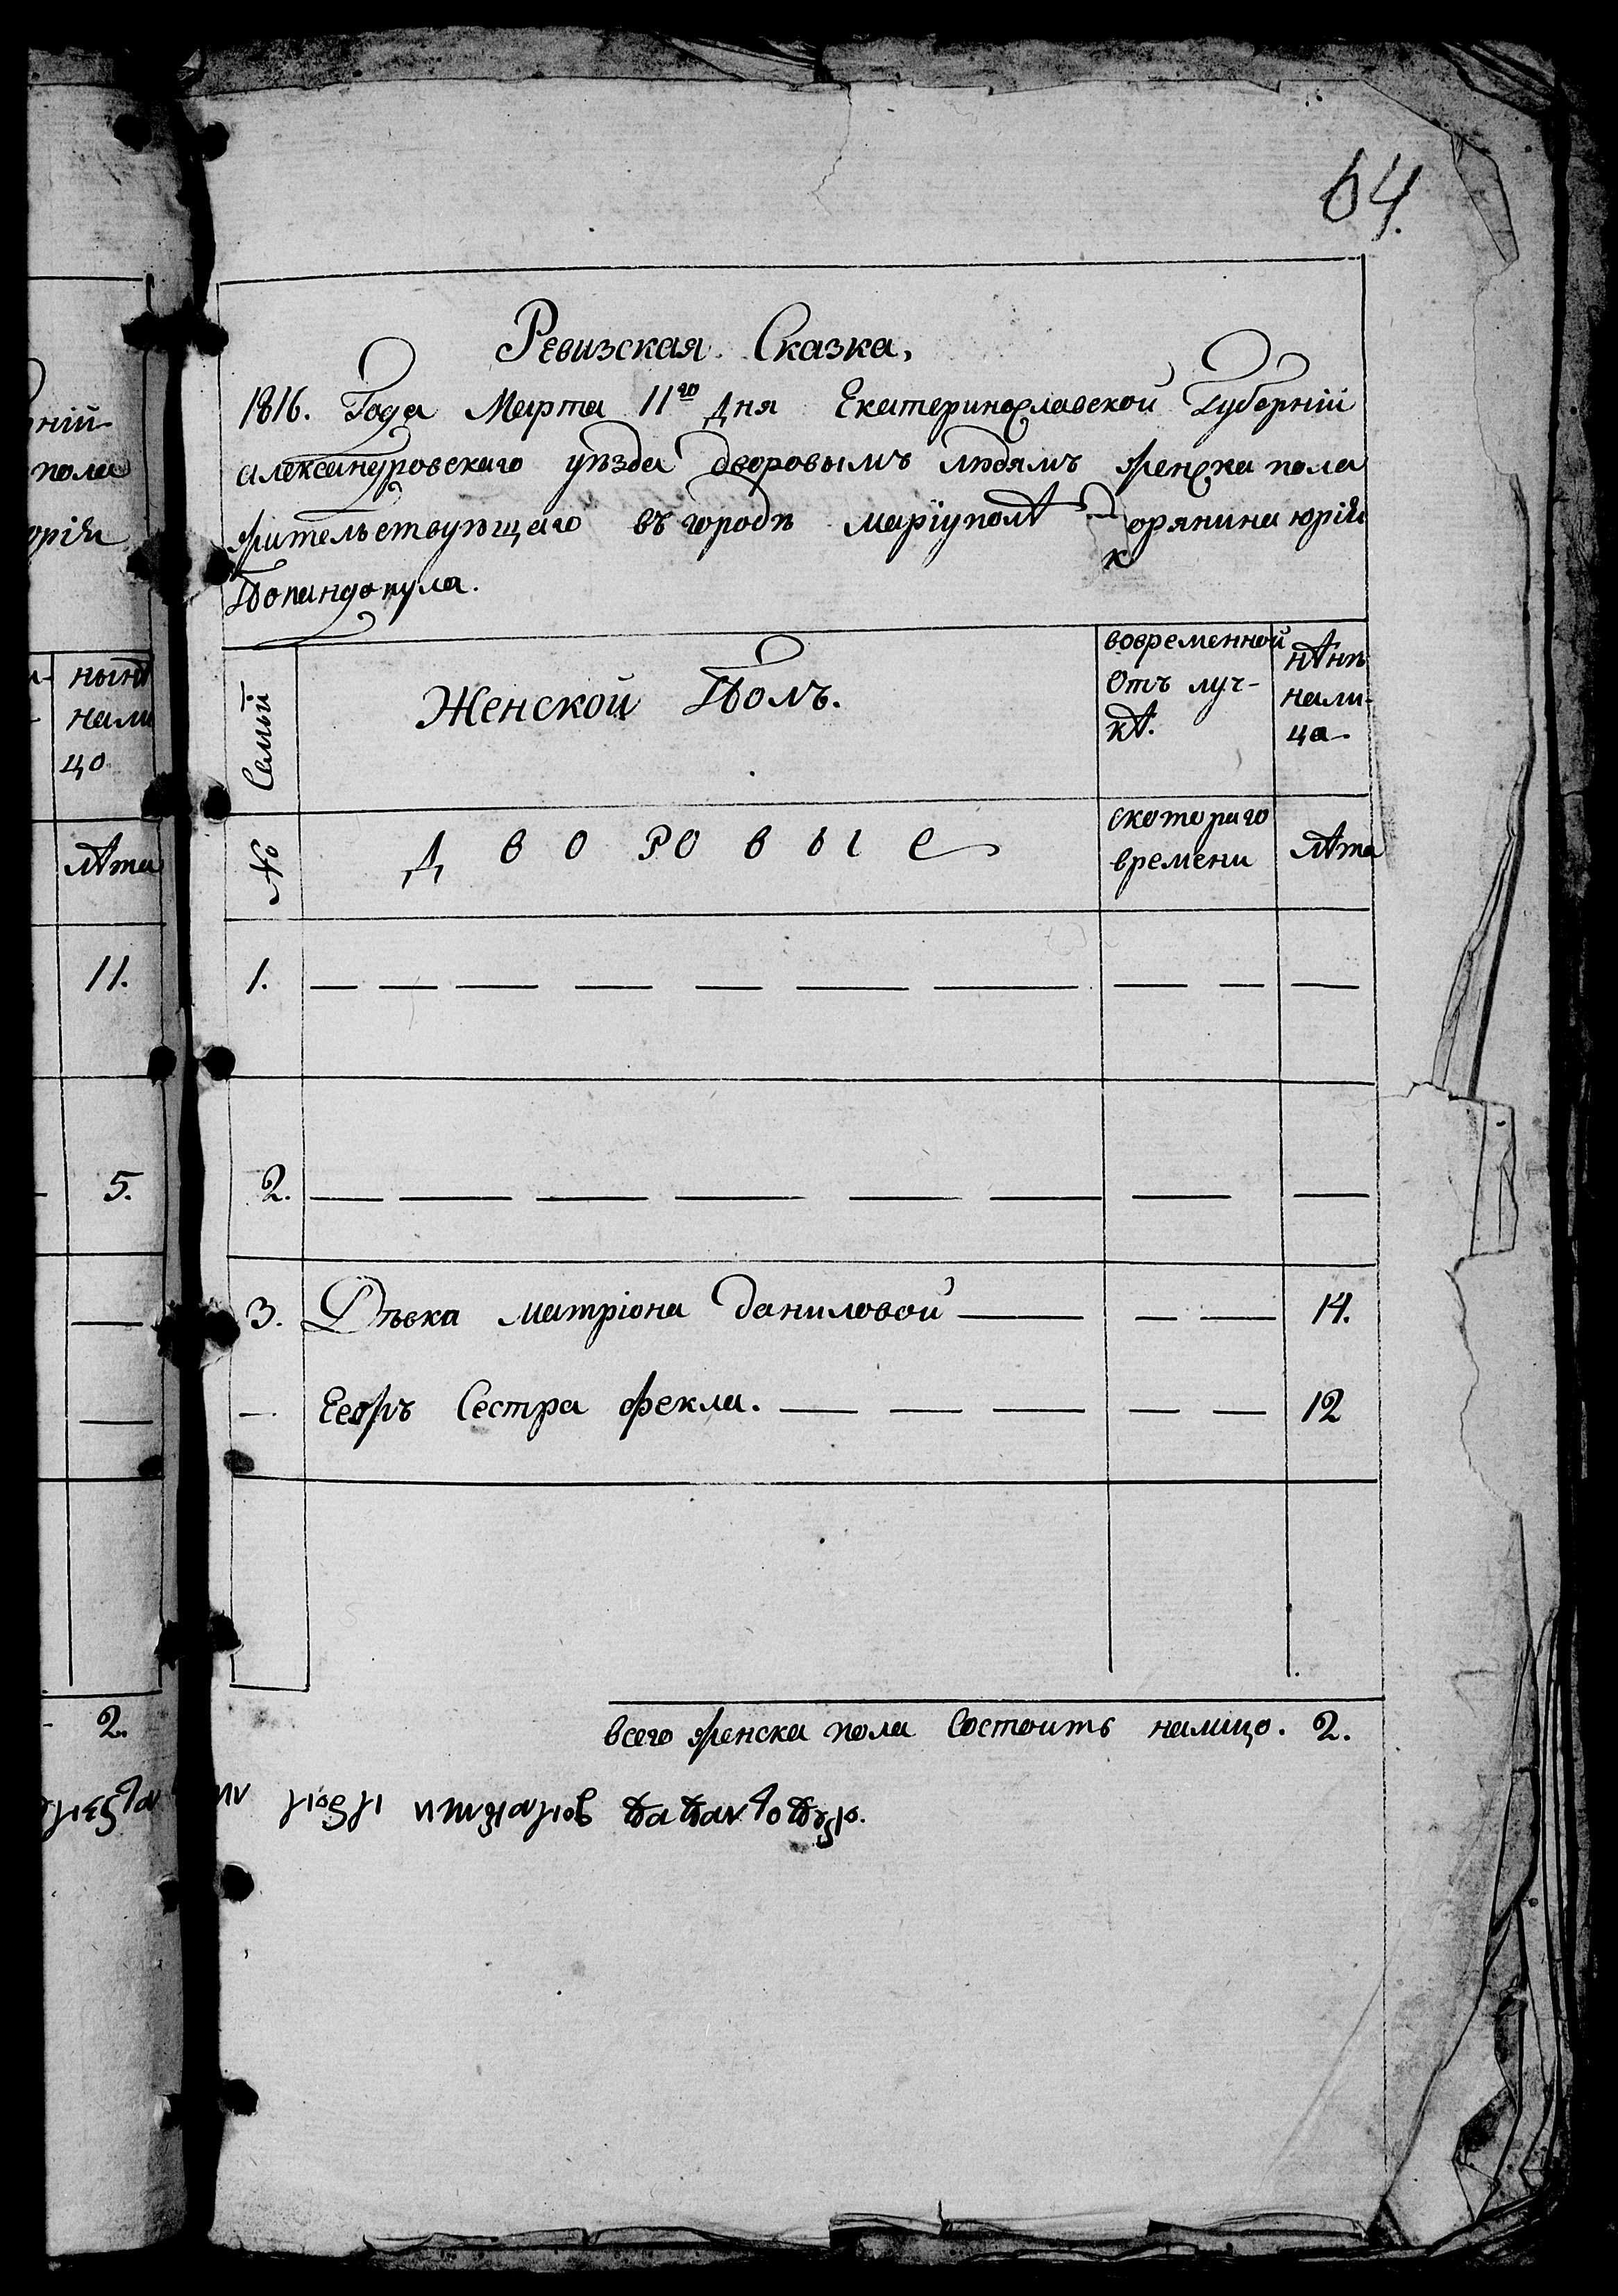 ній
пола
юрія
нынѣ
нали
цо
лѣта
11.
5.
2.
64.
Ревизская Сказка,
1816. Года Марта 11го Дня Екатеринославской Губерній
александровскаго уѣзда дворовымъ людямъ женска пола
жительствующаго въ городѣ маріуполѣ дворянина юрія
Попандопула.
Семьи
Женской Полъ.
вовременной
Отъ луч-
кѣ.
нынѣ
нали-
ца
№
Дворовые
скотораго
времени
лѣта
1.
2.
3. Дѣвка матріона даниловой 14.
Ееже Сестра фекла. 12
всего женска пола Состоитъ налицо. 2.